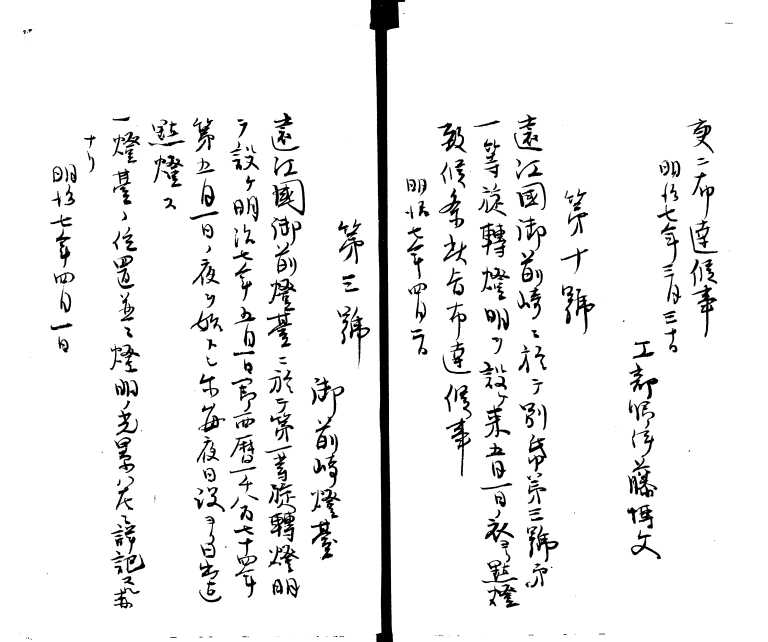 更ニ布達候事
明治七年三月三十日
工部卿伊藤博文
第十號
遠江國御前崎ニ於テ別帋第三號ノ
一等旋轉燈明ヲ設ケ来五月一日ノ夜ヨリ點燈
致候条此旨布達候事
明治七年四月二日
第三號
御前崎燈臺
遠江國御前燈臺ニ於テ第一等旋轉燈明
ヲ設ケ明治七年五月一日即西暦一千八百七十四年
第五月一日ノ夜ヲ始トシ尓後毎夜日没ヨリ日出迄
點燈ス
一燈臺ノ位置並ニ燈明ノ光景ハ左ニ詳記
ナリ
明治七年四月一日